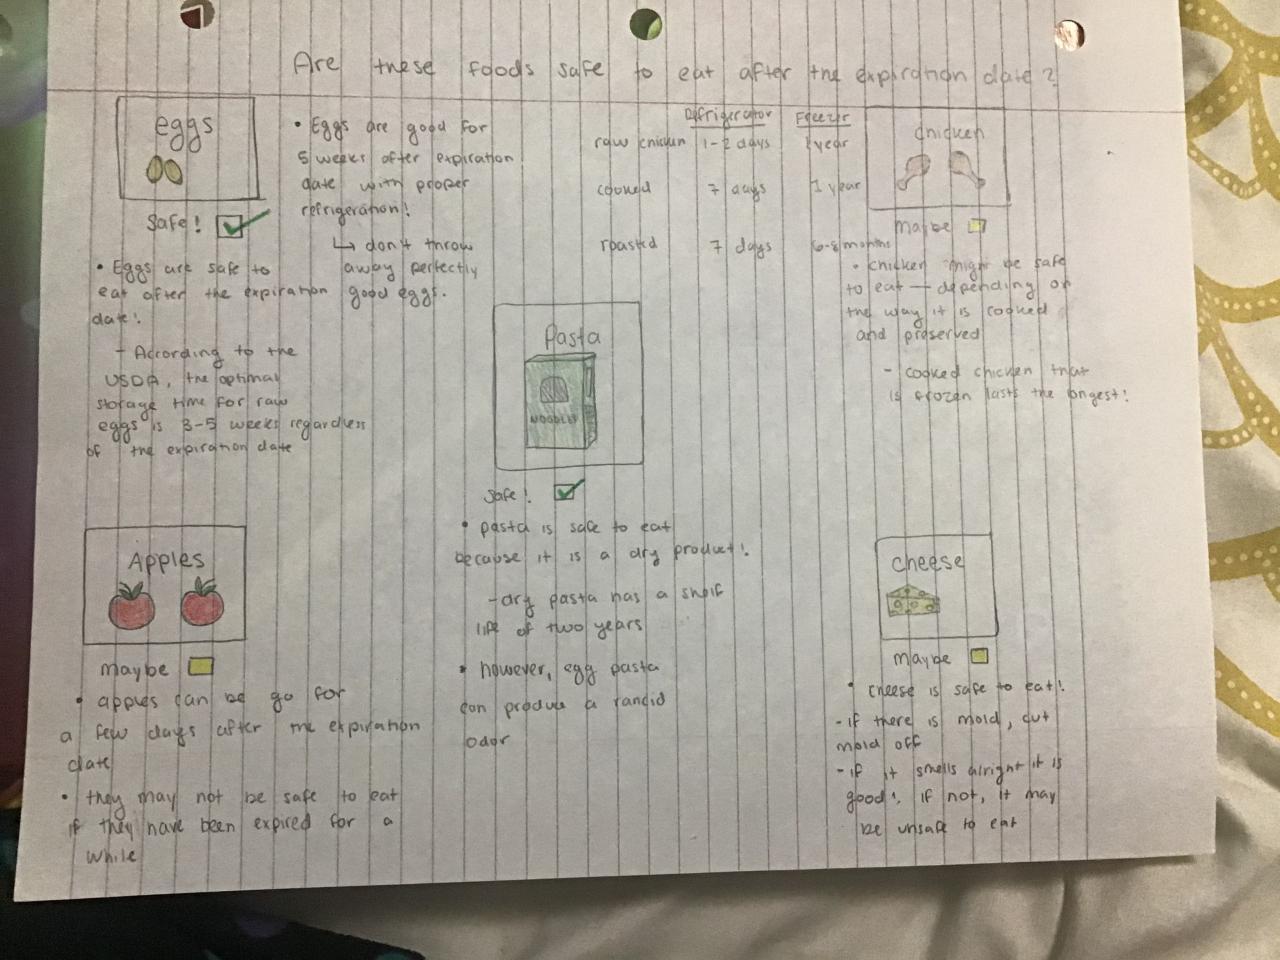 Are these foods safe to eat after the expiration date?
eggs
Safe!
• Eggs are safe to
eat after the expiration
date!
- According to the
USDA, the optimal
storage time for raw
eggs is 3-5 weeks regardless
of the expiration date
• Eggs are good for
5 weeks after expiration
date with proper
refrigeration!
↳ don't throw
away perfectly
good eggs.
Refrigerator Freezer
raw chicken 1-2 days 1 year
cooked 7 days 1 year
roasted 7 days 6-8 months
chicken
maybe
• chicken might be safe
to eat — depending on
the way it is cooked
and preserved
- cooked chicken that
is frozen lasts the longest!
Pasta
NOODLES
safe!
• pasta is safe to eat
because it is a dry product!
- dry pasta has a shelf
life of two years
• however, egg pasta
can produce a rancid
odor
Apples
maybe
• apples can be go for
a few days after the expiration
date
• they may not be safe to eat
if they have been expired for a
while
cheese
maybe
• cheese is safe to eat!
- if there is mold, cut
mold off
- if it smells alright it is
good!, if not, it may
be unsafe to eat